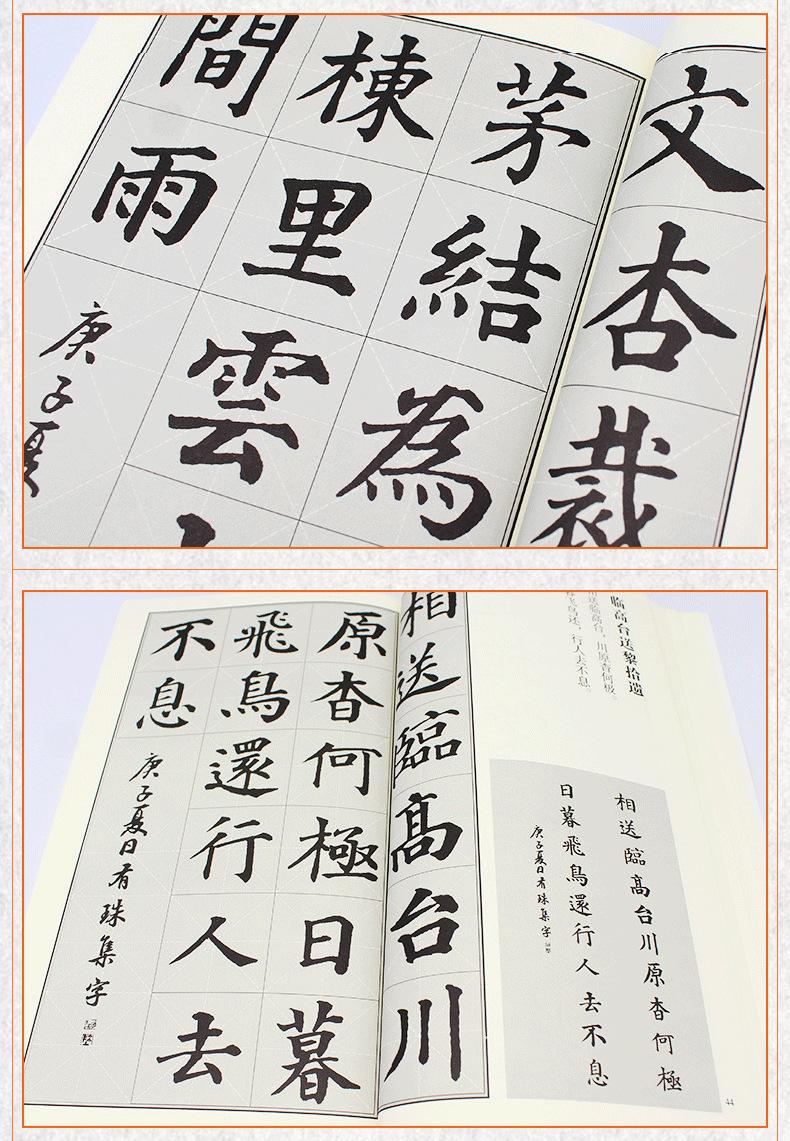 文杏裁
茅結為
棟里雲
間雨
庚子夏
临高台送黎拾遗
相送临高台，川原杳何极。
飞鸟还，行人去不息。
相送臨高台川原杳何極
日暮飛鳥還行人去不息
庚子夏日有珠集字
44
相送臨高台川
原杳何極日暮
飛鳥還行人去
不息
庚子夏日有珠集字